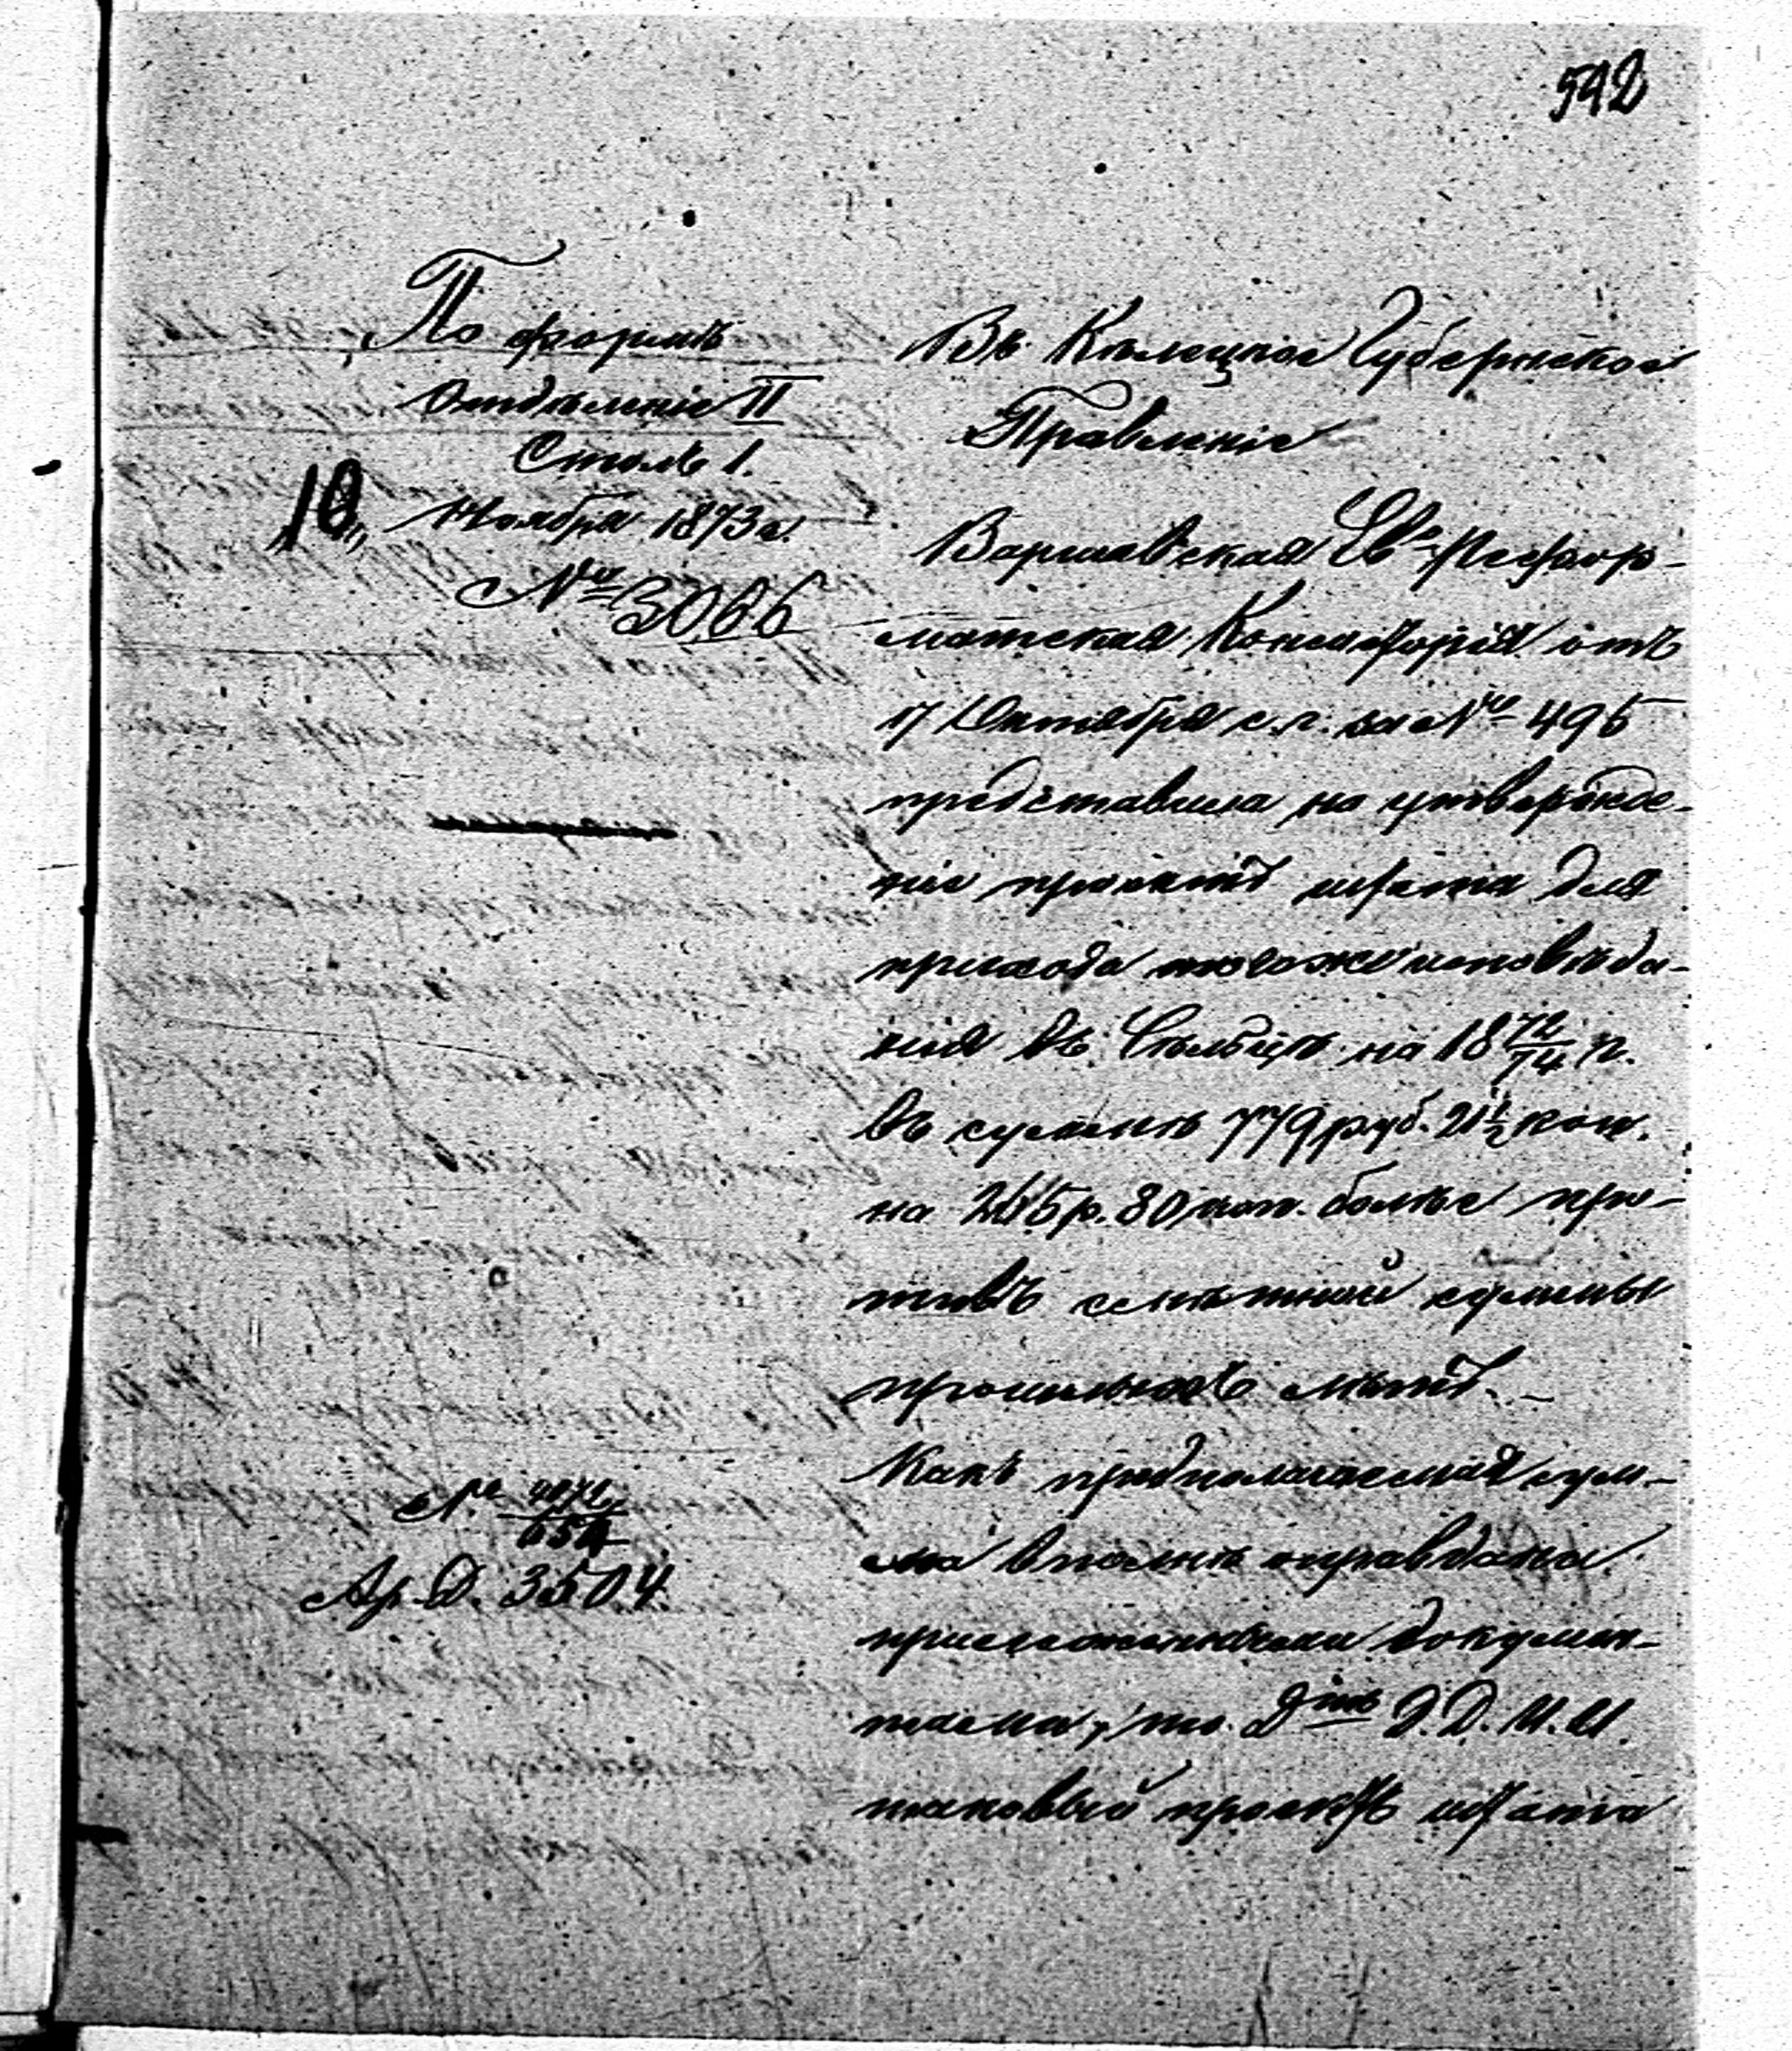 592
По формѣ
Отдѣленіе II
Столъ 1.
"10" Ноября 1873 г.
№ 3066
№ 654
Ар. Д. 3504.
Въ Кѣлецкое Губернское
Правленіе
Варшавская Евг. Рефор-
матская Консисторія отъ
17 Октября с. г. за № 495
представила на утвержде-
ніе проэктъ штата для
прихода того же исповѣда-
нія въ на 18 72/74 г.
въ суммѣ 779 руб. 21½ коп.
на р. 80 коп. болѣе про-
тивъ смѣтной суммы
прошлыхъ лѣтъ. –
Какъ предполагаемая сум-
ма вполнѣ оправдана
приложенными докумен-
тами, то Д. Д. И. И.
таковый проэктъ штата